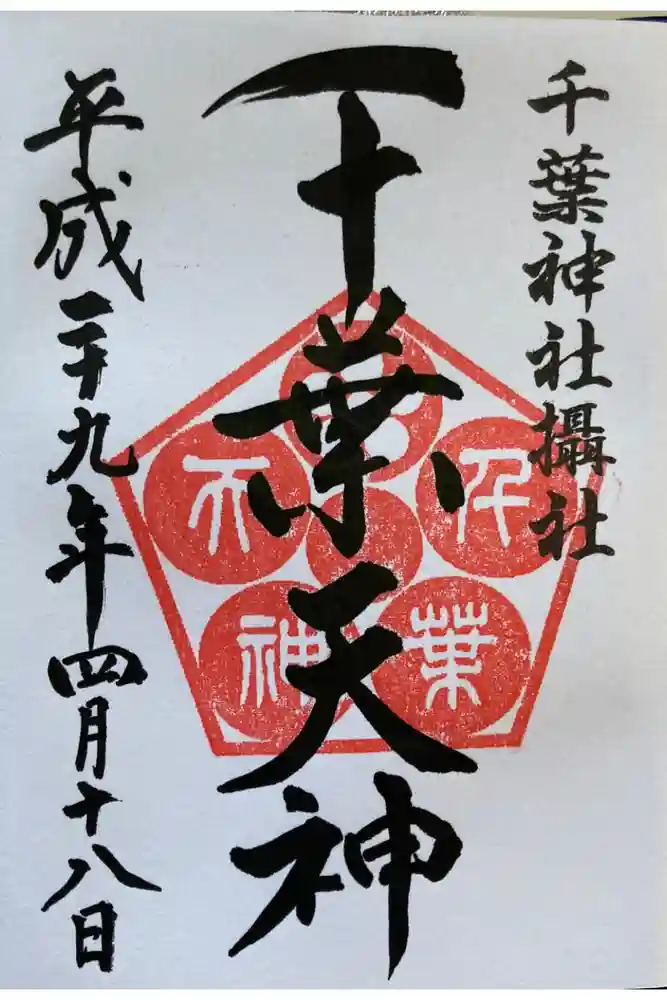 千葉神社攝社
千葉天神
平成二十九年四月十八日
千
葉
神
天